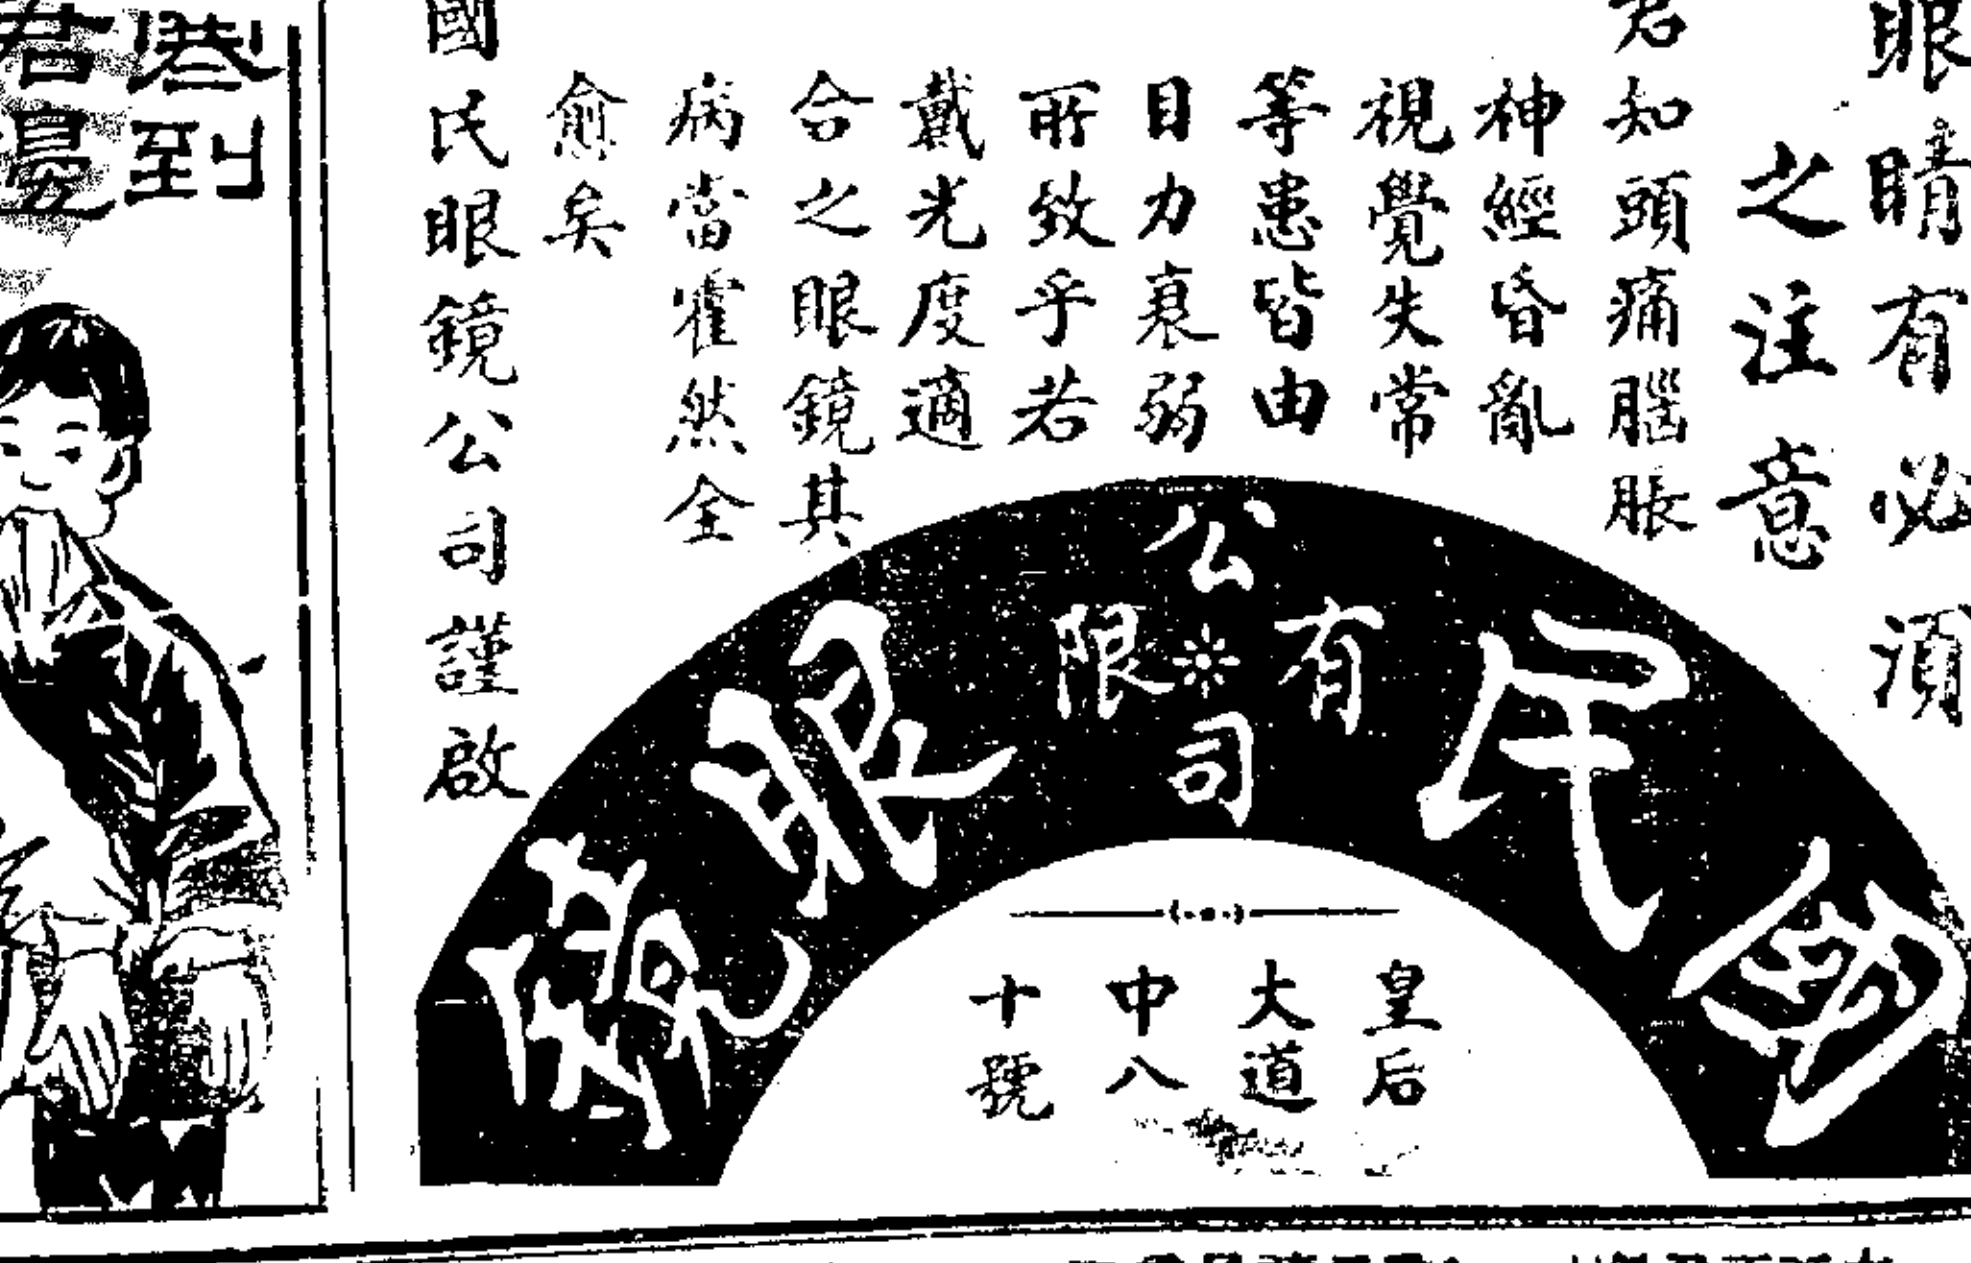 眼睛有必須
之注意
君知頭痛腦脹
神經昏亂
視覺失常
等患皆由
目力衰弱
所致乎若
戴光度適
合之眼鏡其
病當霍然全
愈矣
國民眼鏡公司謹啟
國民眼鏡
公司
有限
皇后
大道
中八
十號
港到
君邊